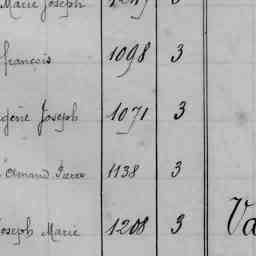 Marie Joseph
françois 1098 3
Joseph 1071 3
Armand Pierre 1138 3
Joseph Marie 1208 3
Va